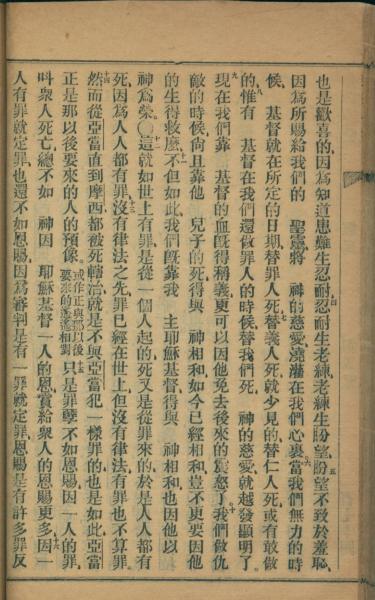 也是歡喜的、因爲知道患難生忍耐、四忍耐生老練、老練生盼望、五盼望不致於羞恥、
因爲所賜給我們的　聖靈將　神的慈愛、澆灌在我們心裏、六當我們無力的時
候、　基督就在所定的日期、替罪人死、七替義人死、就少見的、替仁人死、或有敢做
的、八惟有　基督在我們還做罪人的時候、替我們死、　神的慈愛、就越發顯明了、
九現在我們靠　基督的血旣得稱義、更可以因他免去後來的震怒了、十我們做仇
敵的時候、尙且靠他　兒子的死、得與　神相和、如今已經相和、豈不更要因他
的生得救麽、十一不但如此、我們旣靠我　主耶穌基督得與　神相和、也因他以
神爲榮、〇十二這就如世上有罪、是從一個人起的、死又是從罪來的、於是人人都有
死、因爲人人都有罪、十三沒有律法之先、罪已經在世上、但沒有律法、有罪也不算罪、
十四然而從亞當直到摩西、都被死轄治、就是不與亞當犯一樣罪的、也是如此、亞當
正是那以後要來的人的預像、或作正與那以後要來的遙遙相對十五只是罪孽不如恩賜、因一人的罪、
叫衆人死亡、總不如　神因　耶穌基督一人的恩賞給衆人的恩賜更多、十六因一
人有罪就定罪、也還不如恩賜、因爲審判是有一罪就定罪、恩賜是有許多罪反